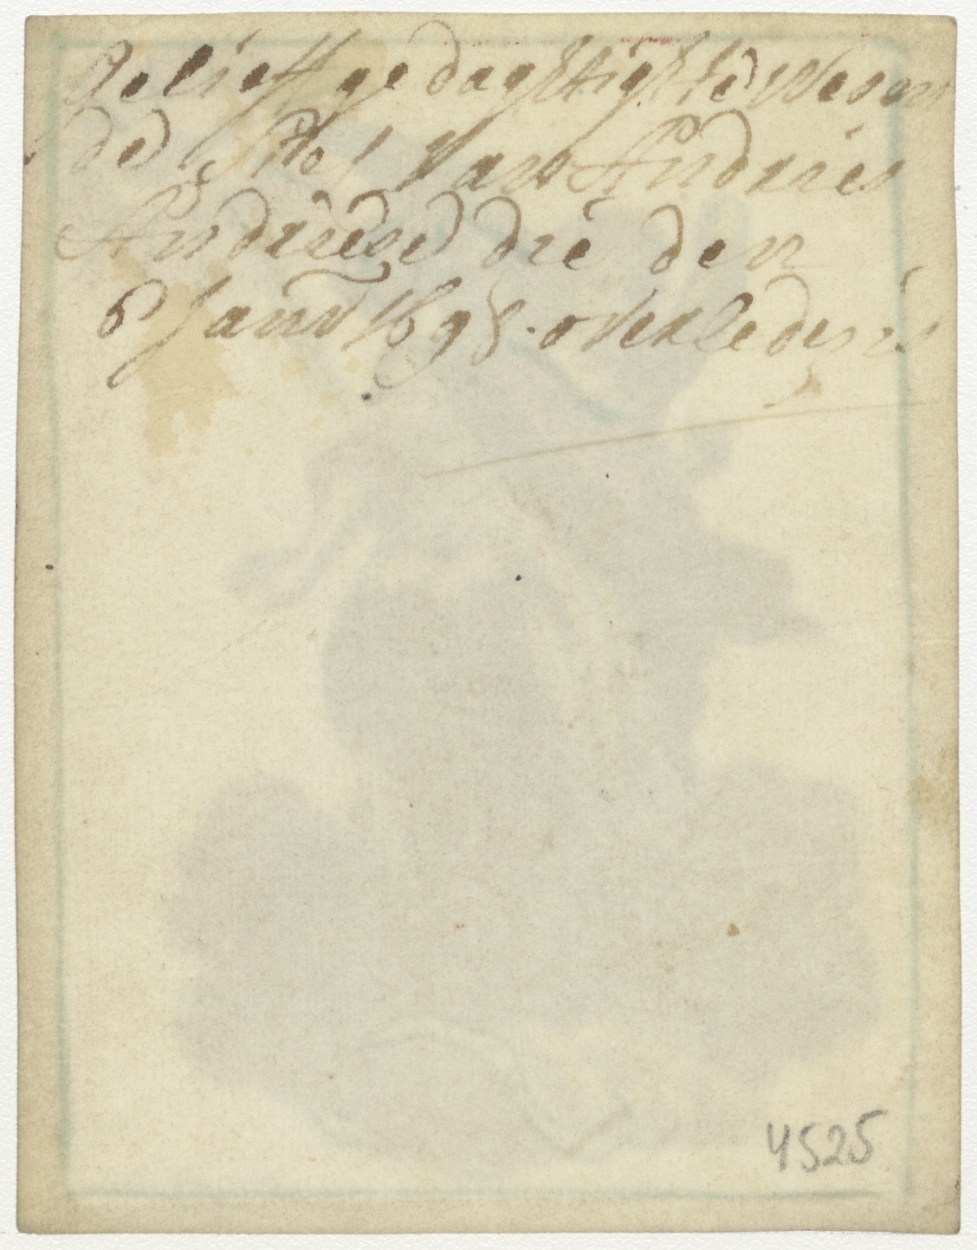 Gelieft gedaghtigh te Wesen
de Siel Van Andries
Andriese die den
6 Janu 1698 overleden is
4525